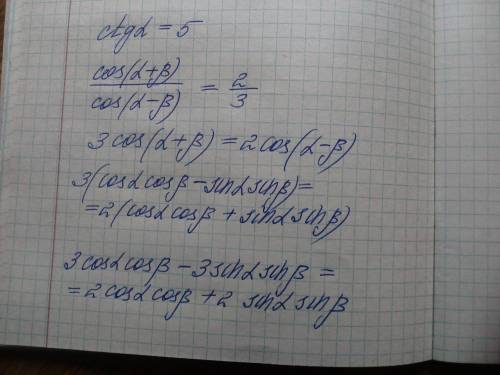 ctgα = 5
cos(α+β) / cos(α-β) = 2/3
3cos(α+β) = 2cos(α-β)
3(cosαcosβ - sinαsinβ) =
= 2(cosαcosβ + sinαsinβ)
3cosαcosβ - 3sinαsinβ =
= 2cosαcosβ + 2 sinαsinβ